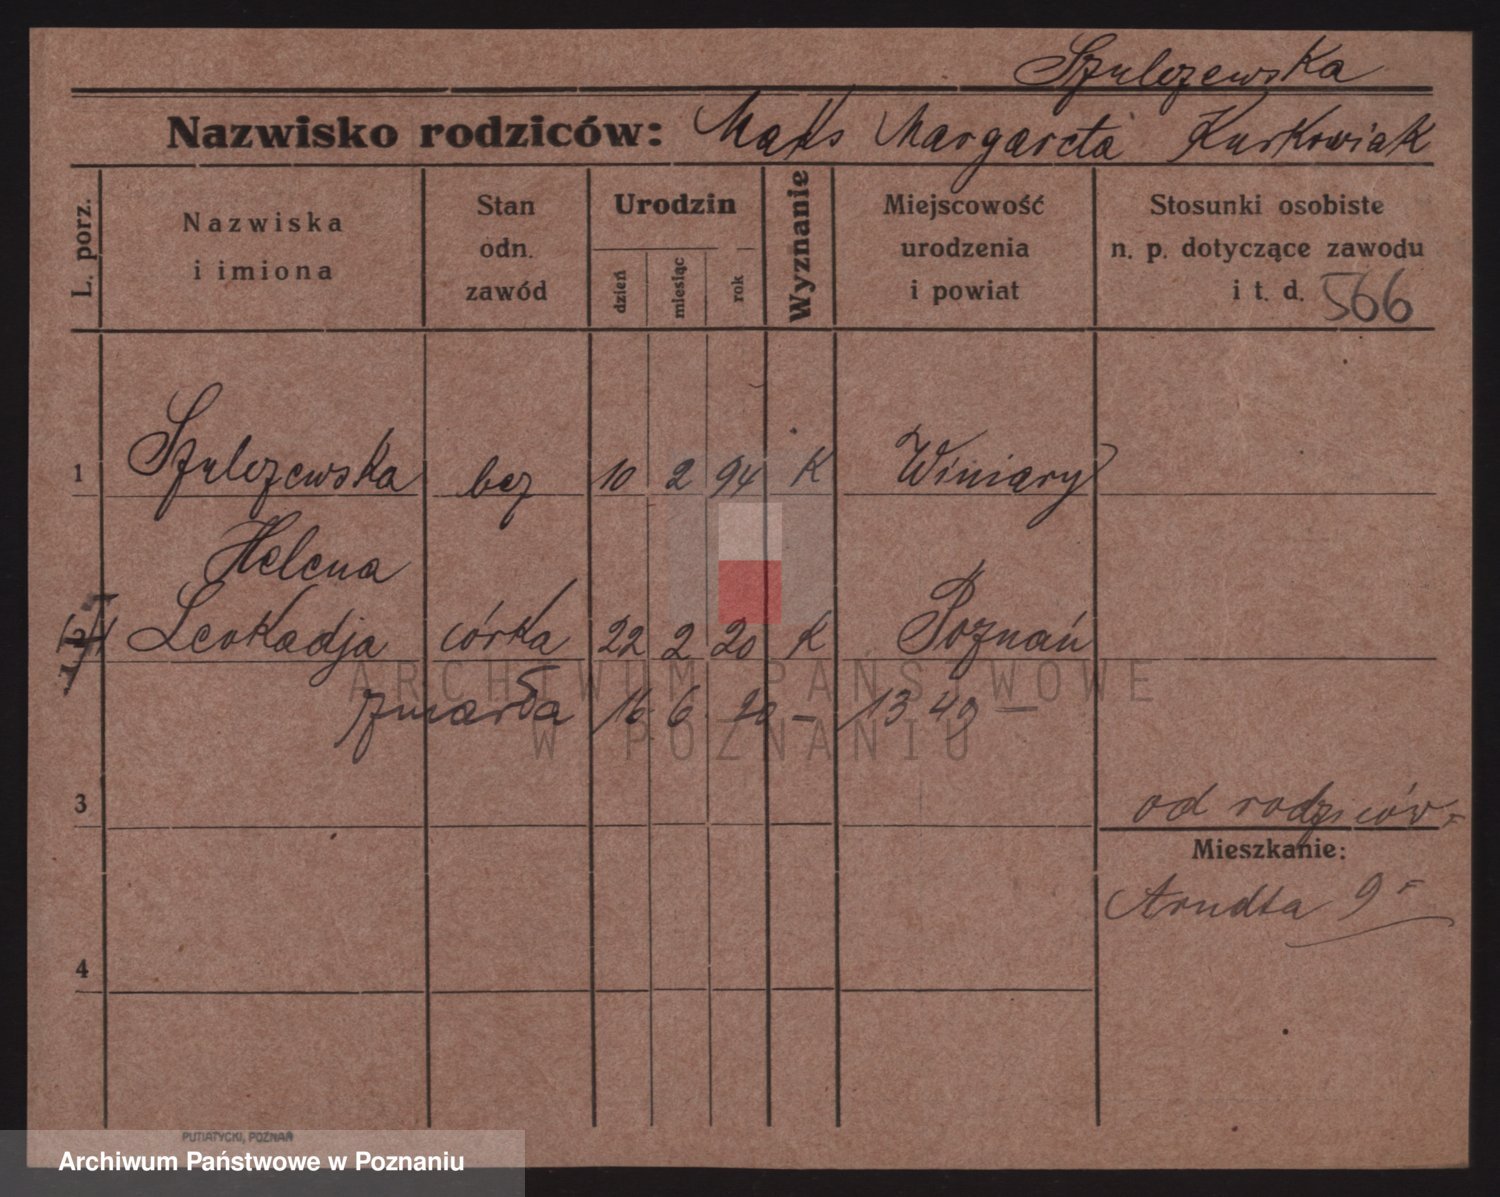 Szulczewska
Nazwisko rodziców: Maks Margareta Kurkowiak
L. porz.
Nazwiska
i imiona
Stan
odn.
zawód
Urodzin
dzień
miesiąc
rok
Wyznanie
Miejscowość
urodzenia
i powiat
Stosunki osobiste
n. p. dotyczące zawodu
i t. d. 566
1 Szulczewska bez 10 2 94 K Winiary
Helena
2 Leokadja córka 22 2 20 K Poznań
ARCHIWUM PAŃSTWOWE
zmarła 16 6 20 – 13 49 –
W POZNANIU
3
od rodziców
Mieszkanie:
Arndta 9
4
PUTIATYCKI, POZNAŃ
Archiwum Państwowe w Poznaniu